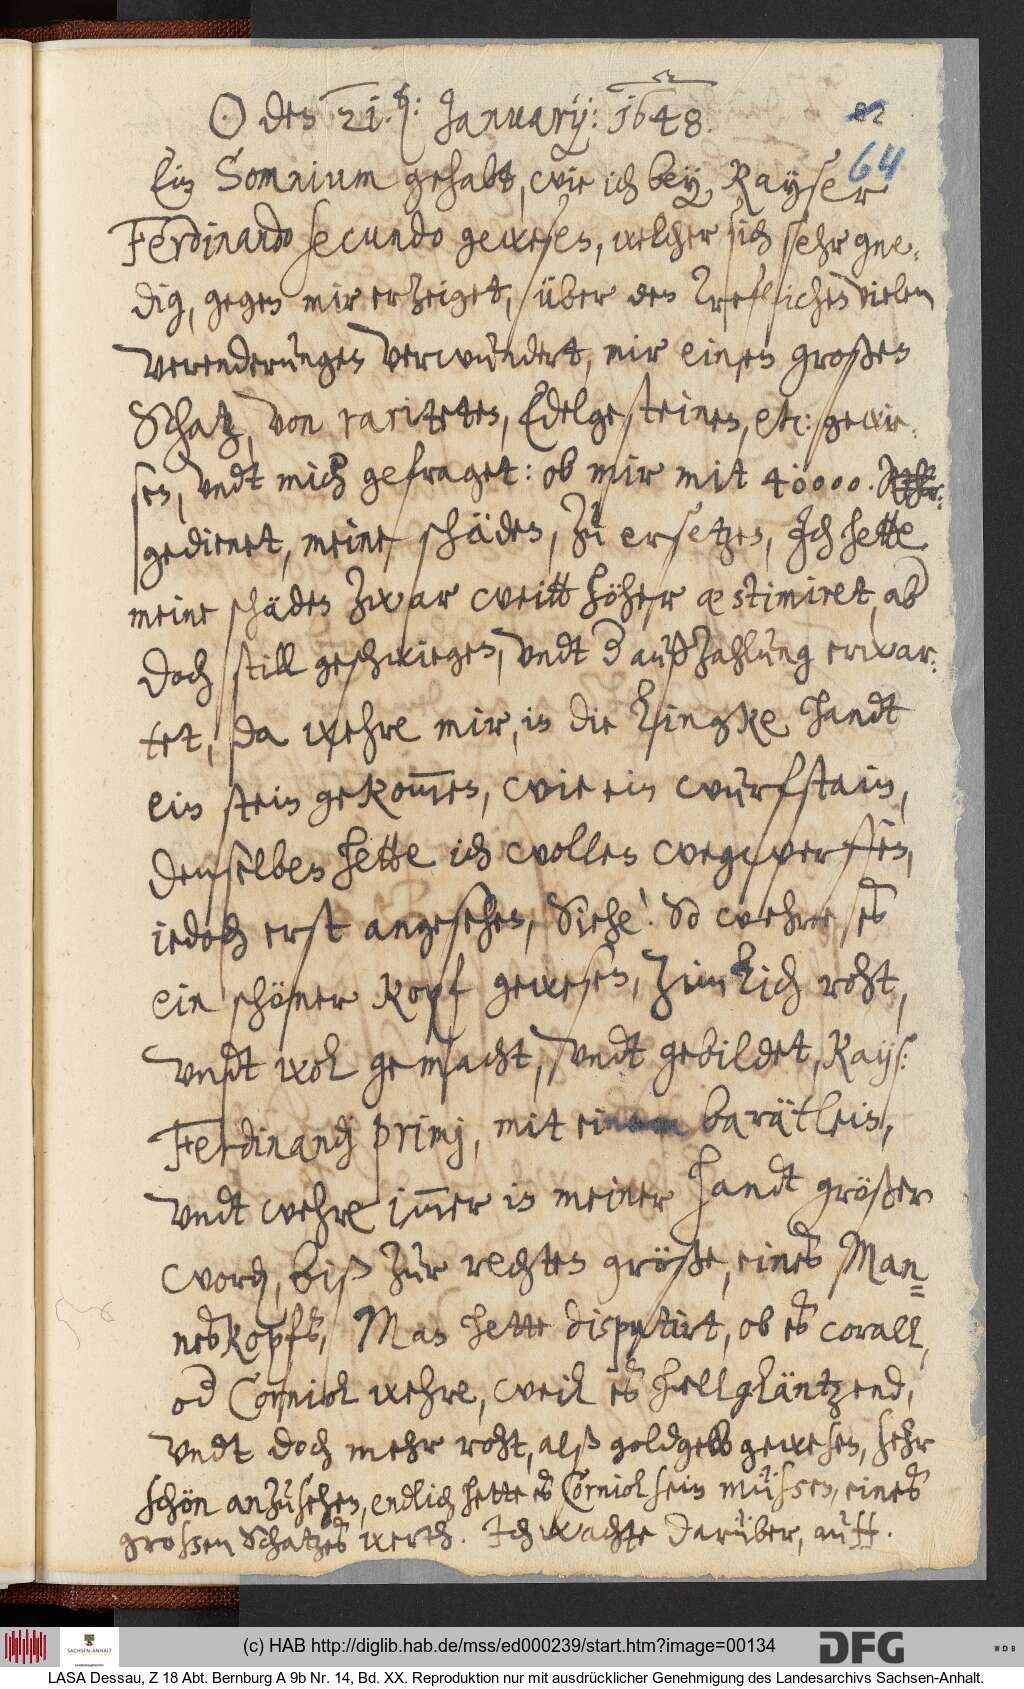 ☉ des 21.ten: January: 1648.
82
64
Ein Somnium gehabt, wie ich bey Kayser
Ferdinando secundo gewesen, welcher sich sehr gne-
dig, gegen mir erzeiget, über den trefflichen vielen
verenderungen verwundert, mir einen großen
Schatz, von rariteten, Edelgesteinen, etc: gewie-
sen, undt mich gefraget: ob mir mit 40000. Rthlr:
gedienet, meine schäden, zu ersetzen, Ich hette
meine schäden zwar weitt höher æstimiret, ab
doch still geschwiegen, undt d außzahlung erwar-
tet, da wehre mir, in die lingke handt
ein stein gekommen, wie ein wurfstain,
denselben hette ich wollen wegwerffen,
iedoch erst angesehen, Siehe! So wehre es
ein schöner Kopf gewesen, zimlich roht,
undt wol gemacht, undt gebildet, Kays:
Ferdinandj primj, mit einem barätlein,
undt wehre immer in meiner handt größer
worden, biß zur rechten größe, eines Man=
neskopfs, Man hette disputirt, ob es corall,
od Corniol wehre, weil es hellgläntzend,
undt doch mehr roht, alß goldgelb gewesen, sehr
schön anzusehen, endlich hette es Corniol sein müssen, eines
grossen Schatzes werth. Ich wachte darüber, auff.
(c) HAB http://diglib.hab.de/mss/ed000239/start.htm?image=00134
SACHSEN-ANHALT
DFG
WDB
LASA Dessau, Z 18 Abt. Bernburg A 9b Nr. 14, Bd. XX. Reproduktion nur mit ausdrücklicher Genehmigung des Landesarchivs Sachsen-Anhalt.